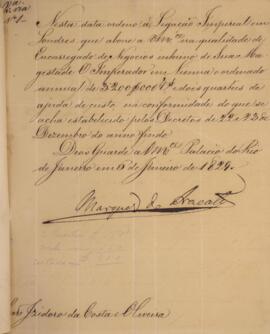 Nesta data ordeno à Legação Imperial em
Londres que abone a Vmce na qualidade de
Encarregado de Negocios interino de Sua Ma-
gestade O Imperador em Vienna o ordenado
annual de 3200$000 rs e dous quarteis de
ajuda de custo, na conformidade do que se
acha estabelecido pelos Decretos de 22 e 23 de
Dezembro do anno findo.
Deos Guarde a Vmce Palacio do Rio
de Janeiro em 6 de Janeiro de 1829.
Marquez do Aracaty
Izidoro da Costa e Oliveira